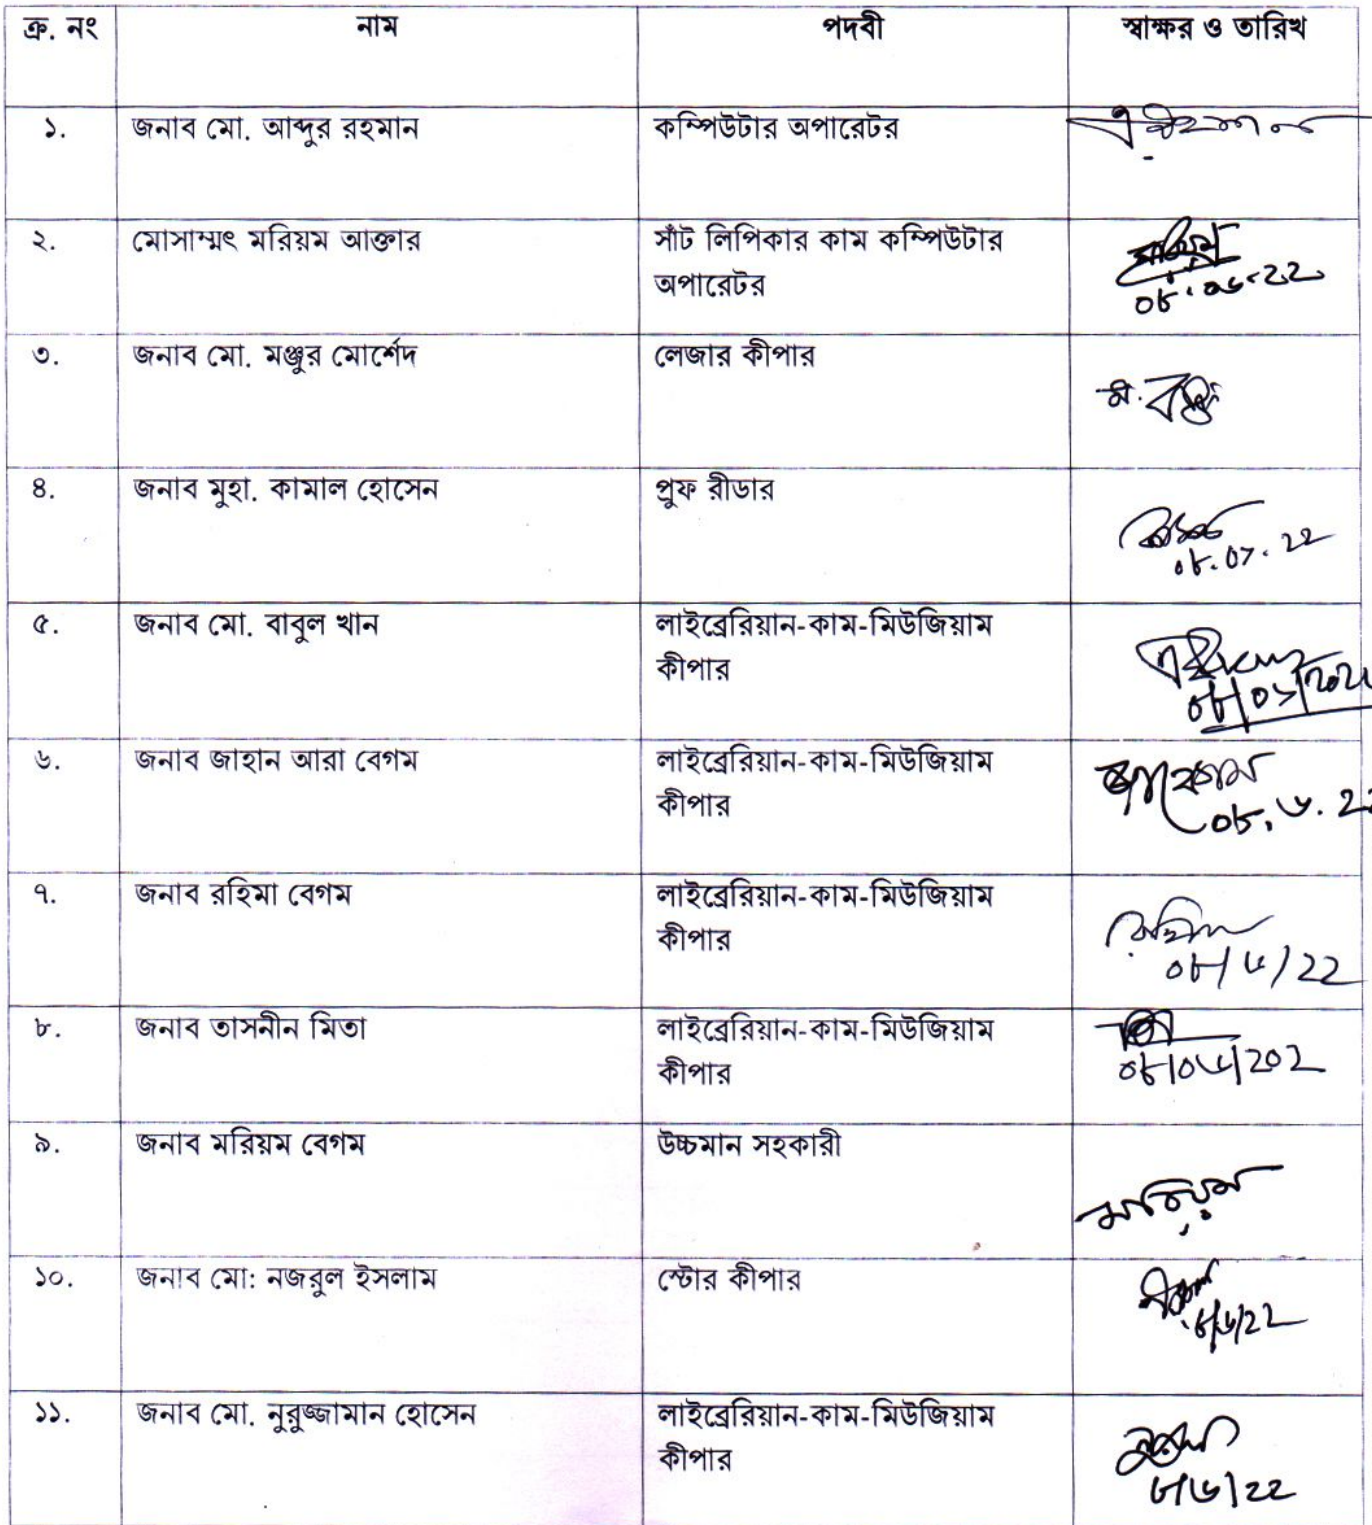 ক্র. নং নাম পদবী স্বাক্ষর ও তারিখ
১. জনাব মো. আব্দুর রহমান কম্পিউটার অপারেটর
২. মোসাম্মৎ মরিয়ম আক্তার সাঁট লিপিকার কাম কম্পিউটার
অপারেটর
৩. জনাব মো. মঞ্জুর মোর্শেদ লেজার কীপার
৪. জনাব মুহা. কামাল হোসেন প্রুফ রীডার
৫. জনাব মো. বাবুল খান লাইব্রেরিয়ান-কাম-মিউজিয়াম
কীপার
৬. জনাব জাহান আরা বেগম লাইব্রেরিয়ান-কাম-মিউজিয়াম
কীপার
০৮.৬.২২
৭. জনাব রহিমা বেগম লাইব্রেরিয়ান-কাম-মিউজিয়াম
কীপার
০৮/৬/২২
৮. জনাব তাসনীন মিতা লাইব্রেরিয়ান-কাম-মিউজিয়াম
কীপার
০৮/০৬/২০২
৯. জনাব মরিয়ম বেগম উচ্চমান সহকারী
মরিয়ম
১০. জনাব মো: নজরুল ইসলাম স্টোর কীপার
৮/৬/২২
১১. জনাব মো. নুরুজ্জামান হোসেন লাইব্রেরিয়ান-কাম-মিউজিয়াম
কীপার
৮/৬/২২